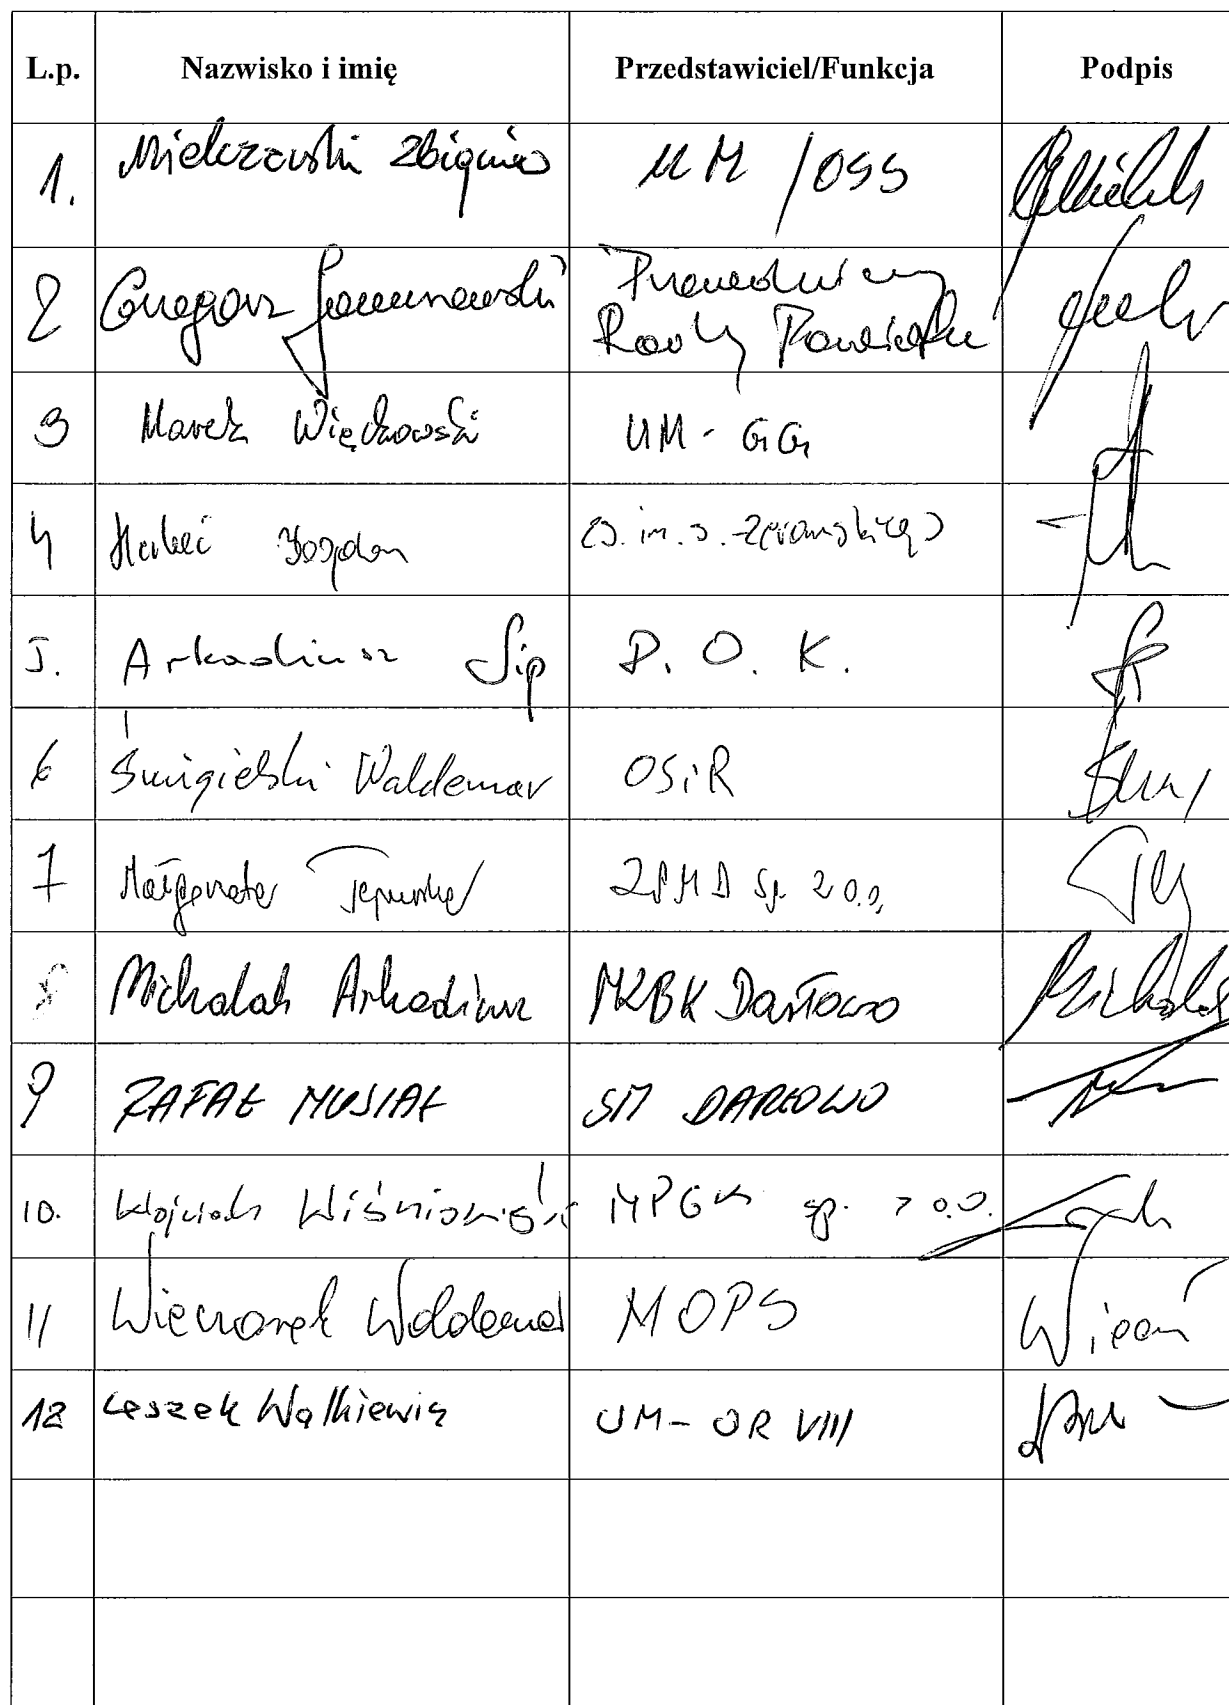 L.p. Nazwisko i imię Przedstawiciel/Funkcja Podpis
1. Mielczarski Zbigniew UM /OSS
2 Grzegorz Przewodniczący
Rady Powiatu
3 Marek Więckowski UM - GG
4 Bogdan ZS. im. S. Żeromskiego
5. Arkadiusz Sip D. O. K.
6 Śmigielski Waldemar OSiR
7 Małgorzata ZPMD Sp. z o.o.
8 Michalak Arkadiusz MKBK Darłowo
9 RAFAŁ MUSIAŁ SM DARŁOWO
10. Wojciech Wiśniowski MPGK sp. z o.o.
11 Wieczorek Waldemar MOPS
12 Leszek Walkiewicz UM - OR VIII